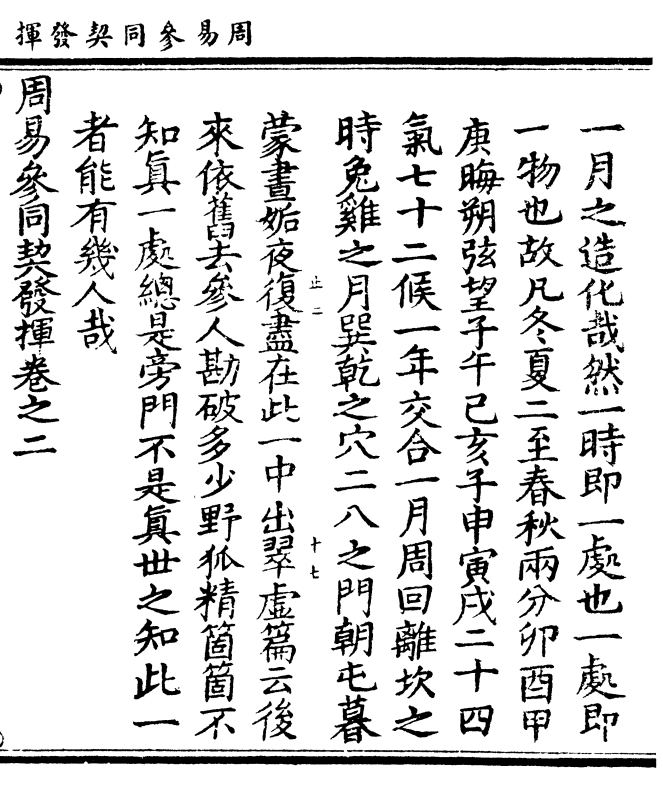 周易參同契發揮
一月之造化哉然一時即一處也一處即
一物也故凡冬夏二至春秋兩分卯酉甲
庚晦朔弦望子午巳亥子申寅戌二十四
氣七十二候一年交合一月周回離坎之
時兔雞之月巽乾之穴二八之門朝屯暮
蒙晝姤夜復盡在此一中出翠虛篇云後
來依舊去參人勘破多少野狐精箇箇不
知眞一處總是旁門不是眞世之知此一
者能有幾人哉
周易參同契發揮卷之二
止二
十七